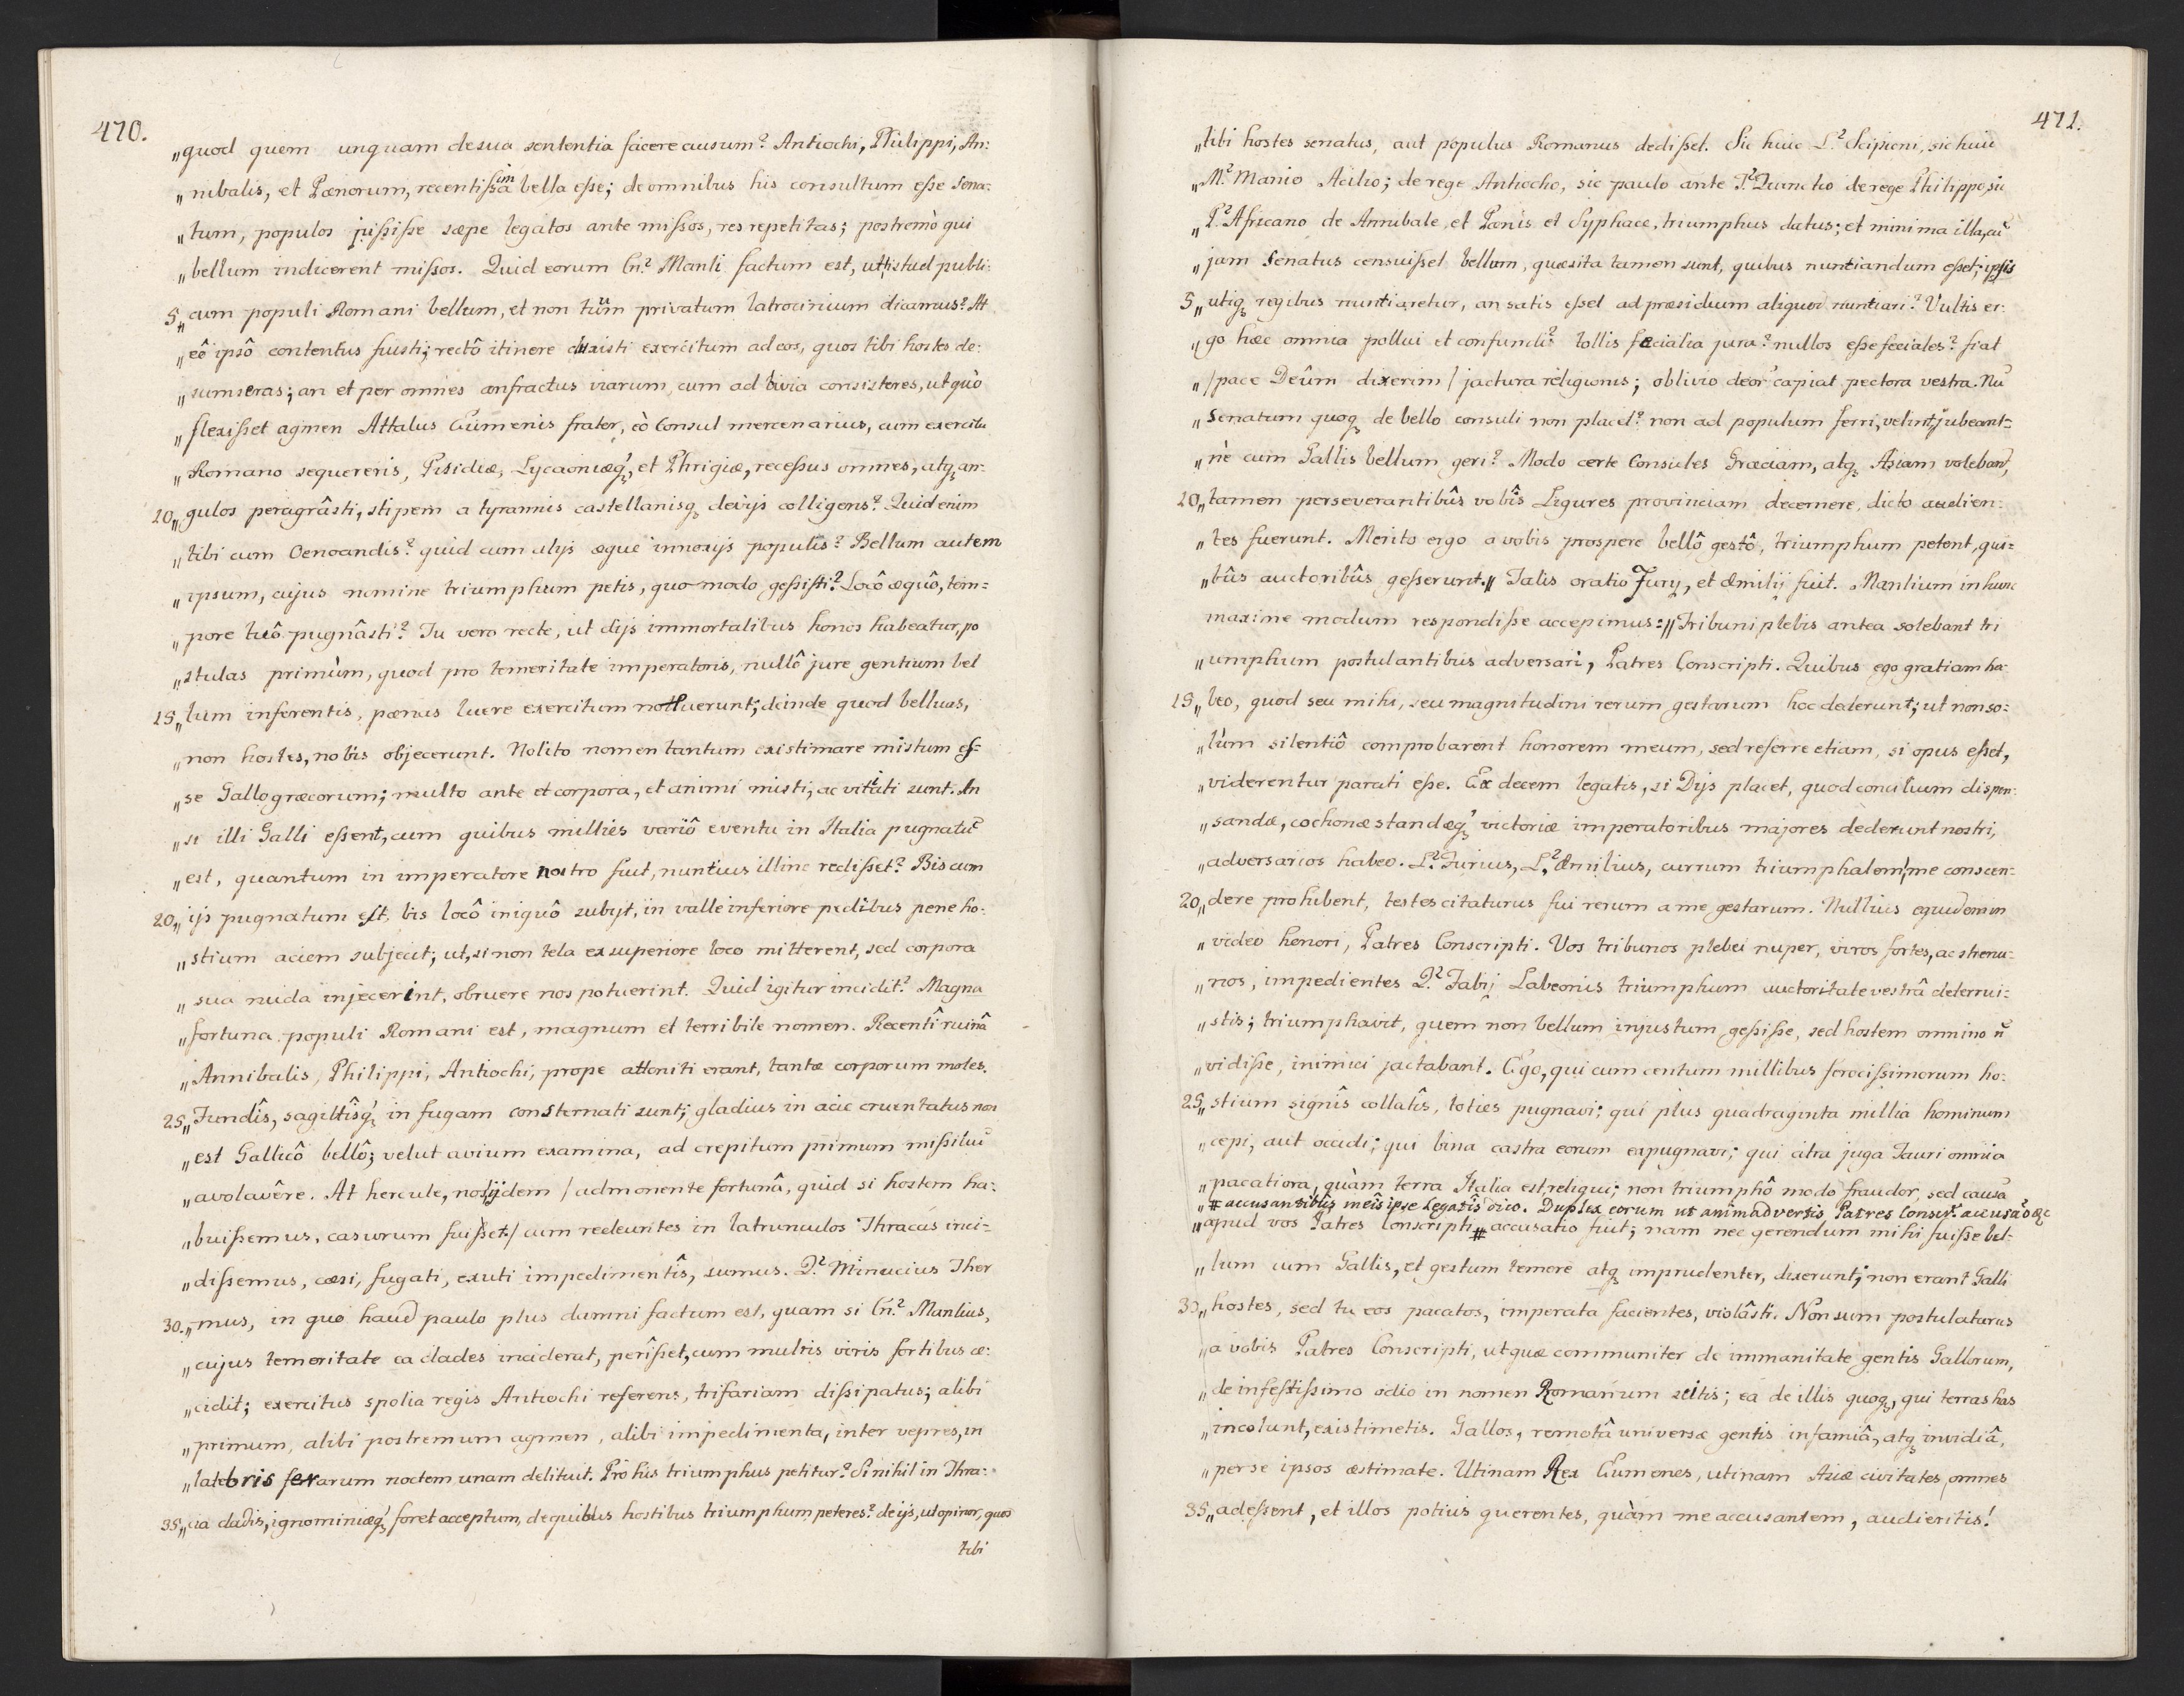 470.
„quod quem unquam de sua sententia facere ausum? Antiochi, Philippi, An:
„nibalis, et Pœnorum, recentissima bella esse; de omnibus his consultum esse Sena:
„tum, populos jussisse sæpe legatos ante missos, res repetitas; postremò qui
„bellum indicerent missos. Quid eorum Cn.² Manli factum est, ut istud publi:
5„cum populi Romani bellum, et non tuum privatum latrocinium dicamus? At
„eô ipsô contentus fuisti; rectô itinere duxisti exercitum ad eos, quos tibi hostes de:
„sumseras; an et per omnes anfractus viarum, cum ad bivia consisteres, ut quò
„flexisset agmen Attalus Eumenis frater, eò Consul mercenarius, cum exercitu
„Romano sequereris, Pisidiæ, Lycaoniæq́ꝫ, et Phrigiæ, recessus omnes, atqꝫ an:
10„gulos peragrâsti, stipem a tyrannis castellanisqꝫ devijs colligens? Quid enim
„tibi cum Oenoandis? quid cum alijs æque innoxijs populis? Bellum autem
„ipsum, cujus nomine triumphum petis, quo modo gessisti? Locô æquô, tem=
„pore tuô pugnâsti? Tu vero recte, ut dijs immortalibus honos habeatur, po
„stulas primùm, quod pro temeritate imperatoris, nullô jure gentium bel
15„lum inferentis, pœnas luere exercitum noluerunt; deinde quod belluas,
„non hostes, nobis objecerunt. Nolito nomen tantum existimare mistum es=
„se Gallogræcorum; multo ante et corpora, et animi misti, ac vitiati sunt. An
„si illi Galli essent, cum quibus millies variô eventu in Italia pugnatū
„est, quantum in imperatore nostro fuit, nuntius illinc redisset? Bis cum
20„ijs pugnatum est, bis locô iniquô subijt, in valle inferiore pedibus pene ho:
„stium aciem subjecit; ut, si non tela ex superiore loco mitterent, sed corpora
„sua nuda injecerint, obruere nos potuerint. Quid igitur incidit? Magna
„fortuna populi Romani est, magnum et terribile nomen. Recentî ruinâ
„Annibalis, Philippi, Antiochi, prope attoniti erant, tantæ corporum moles.
25„Fundîs, sagittîsq́ꝫ in fugam consternati sunt; gladius in acie cruentatus non
„est Gallicô bellô; velut avium examina, ad crepitum primum missiliū
„avolavêre. At hercule, nos ijdem / admonente fortunâ, quid si hostem ha:
„buissemus, casurum fuisset / cum redeuntes in latrunculos Thracas inci=
„dissemus, cæsi, fugati, exuti impedimentîs, sumus. Q.² Minucius Ther
30.„mus, in quo haud paulo plus damni factum est, quam si Cn.² Manlius,
„cujus temeritate ea clades inciderat, perîsset, cum multis viris fortibus ce:
„cidit; exercitus spolia regis Antiochi referens, trifariam dissipatus; alibi
„primum, alibi postremum agmen, alibi impedimenta, inter vepres, in
„latebris ferarum noctem unam delituit. Pro his triumphus petitur? Si nihil in Thra:
35„cia cladis, ignominiæq́ꝫ foret acceptum, de quibus hostibus triumphum peteres? de ijs, ut opinor, quos
tibi
471.
„tibi hostes senatus, aut populus Romanus dedisset. Sic huic L.² Scipioni, sic huic
„M.² Manio Acilio; de rege Antiocho, sic paulo ante T.² Quinctio de rege Philippo, sic
„P.² Africano de Annibale, et Pœnis et Syphace, triumphus datus; et minima illa, cū
„jam Senatus censuisset bellum, quæsita tamen sunt, quibus nuntiandum esset; ipsis
5„utiqꝫ regibus nuntiaretur, an satis esset ad præsidium aliquod nuntiari? Vultis er:
„go hæc omnia pollui et confundi? tollis fecialia jura? nullos esse feciales? fiat
„/pace Deûm dixerim/ jactura religionis; oblivio deor̃ capiat pectora vestra. Nū
„Senatum quoqꝫ de bello consuli non placet? non ad populum ferri, velint, jubeant=
„ne cum Gallis bellum geri? Modo certe Consules Græciam, atqꝫ Asiam volebant,
10„tamen perseverantibûs vobîs Ligures provinciam decernere, dicto audien:
„tes fuerunt. Merito ergo a vobis prospere bellô gestô, triumphum petent, qui=
„bûs auctoribûs gesserunt.„ Talis oratio Furij, et Æmilij fuit. Manlium in hunc
maxime modum respondisse accepimus: „Tribuni plebis antea solebant tri
„umphum postulantibus adversari, Patres Conscripti. Quibus ego gratiam ha:
15„beo, quod seu mihi, seu magnitudini rerum gestarum hoc dederunt; ut non so:
„lùm silentiô comprobarent honorem meum, sed referre etiam, si opus esset,
„viderentur parati esse. Ex decem legatis, si Dijs placet, quod concilium dispen:
„sandæ, cohonestandæq́ꝫ victoriæ imperatoribus majores dederunt nostri,
„adversarios habeo. L.² Furius, L.² Æmilius, currum triumphalem, me conscen:
20„dere prohibent, testes citaturus fui rerum a me gestarum. Nullius equidem in
„video honori, Patres Conscripti. Vos tribunos plebei nuper, viros fortes, ac strenu:
„nos, impedientes Q.² Fabij Labeonis triumphum auctoritate vestrâ deterrui:
„stis; triumphavit, quem non bellum injustum gessisse, sed hostem omnino ñ
„vidisse, inimici jactabant. Ego, qui cum centum millibus ferocissimorum ho:
25„stium signîs collatîs, toties pugnavi; qui plus quadraginta millia hominum
„cepi, aut occidi; qui bina castra eorum expugnavi; qui citra juga Tauri omnia
„pacatiora, quàm terra Italia est, reliqui; non triumphô modo fraudor, sed causā
„# accusantibûs meîs ipse Legatîs dico. Duplex eorum ut animadvertis Patres Conscr.² accusaõ &c
„apud vos Patres Conscripti # accusatio fuit; nam nec gerendum mihi fuisse bel:
„lum cum Gallis, et gestum temere atqꝫ imprudenter, dixerunt; non erant Galli
30„hostes, sed tu eos pacatos, imperata facientes, violâsti. Non sum postulaturus
„a vobis Patres Conscripti, ut quæ communiter de immanitate gentis Gallorum,
„de infestissimo odio in nomen Romanum scitis; ea de illis quoqꝫ, qui terras has
„incolunt, existimetis. Gallos, remotâ universæ gentis infamiâ, atqꝫ invidiâ,
„per se ipsos æstimate. Utinam Rex Eumenes, utinam Asiæ civitates omnes
35„adessent, et illos potius querentes, quàm me accusantem, audieritis!